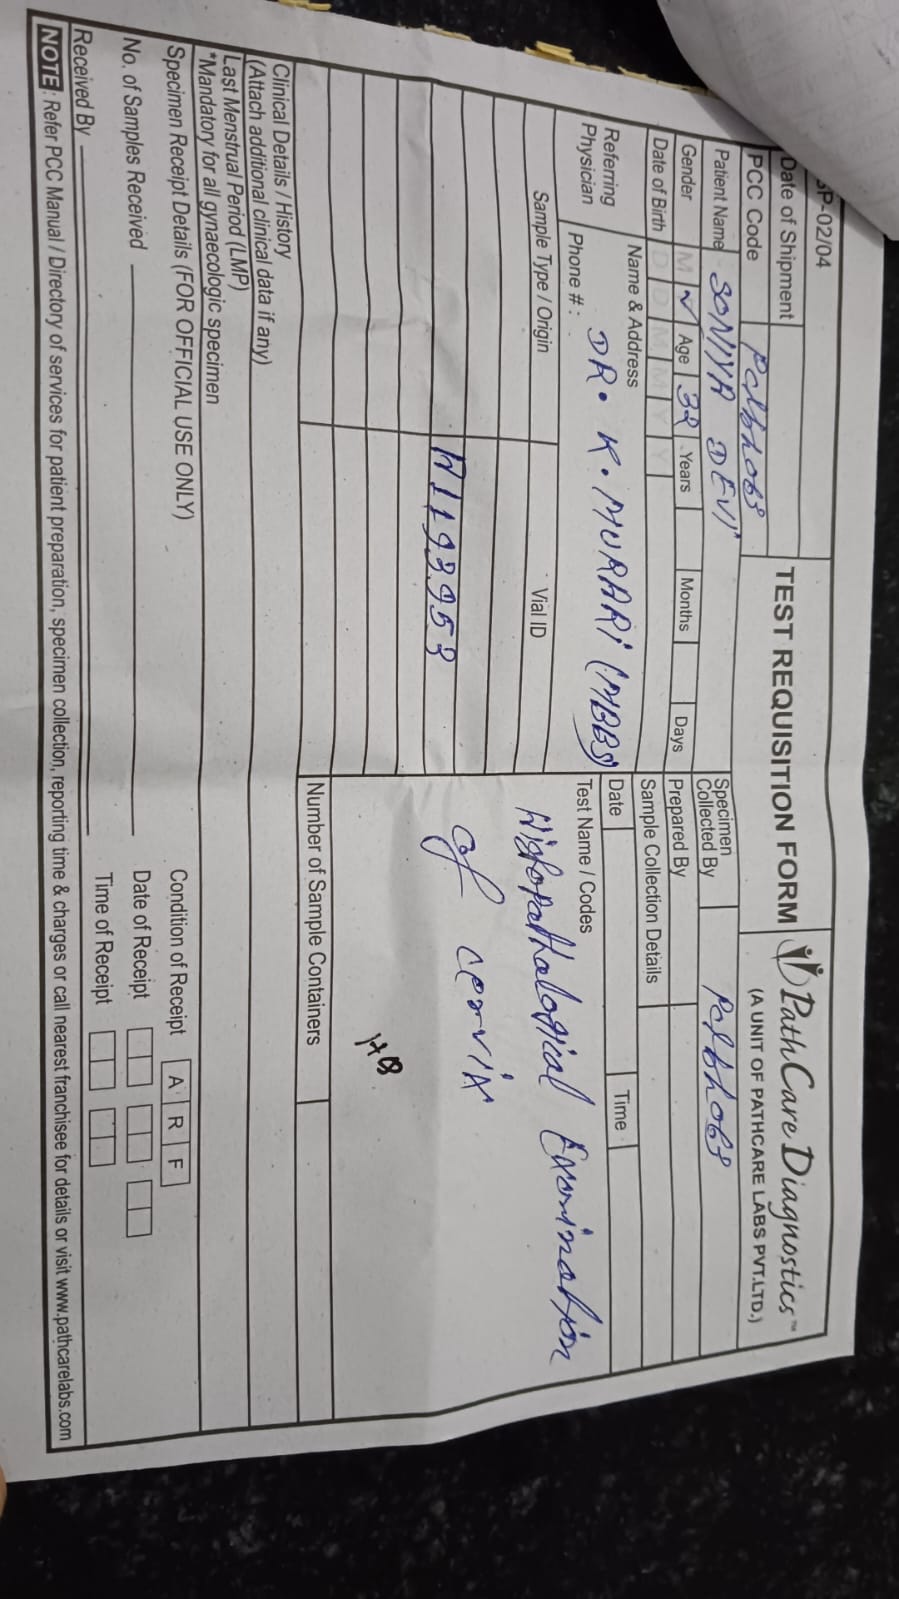 SP-02/04
Date of Shipment
TEST REQUISITION FORM
PathCare Diagnostics™
(A UNIT OF PATHCARE LABS PVT.LTD.)
PCC Code pclbh063
Patient Name SONIYA DEVI
Specimen Collected By pclbh063
Gender M ✓ Age 32 Years Months Days
Prepared By
Date of Birth D D M M Y Y
Sample Collection Details
Referring Physician
Name & Address
DR. K. MURARI (MBBS)
Phone # :
Date Time
Sample Type / Origin Vial ID
Test Name / Codes
Histopathalogical Examination
of cervix
H1193953
Clinical Details / History
(Attach additional clinical data if any)
Number of Sample Containers
Last Menstrual Period (LMP)
*Mandatory for all gynaecologic specimen
Specimen Receipt Details (FOR OFFICIAL USE ONLY)
Condition of Receipt A R F
No. of Samples Received
Date of Receipt
Received By
Time of Receipt
NOTE : Refer PCC Manual / Directory of services for patient preparation, specimen collection, reporting time & charges or call nearest franchisee for details or visit www.pathcarelabs.com